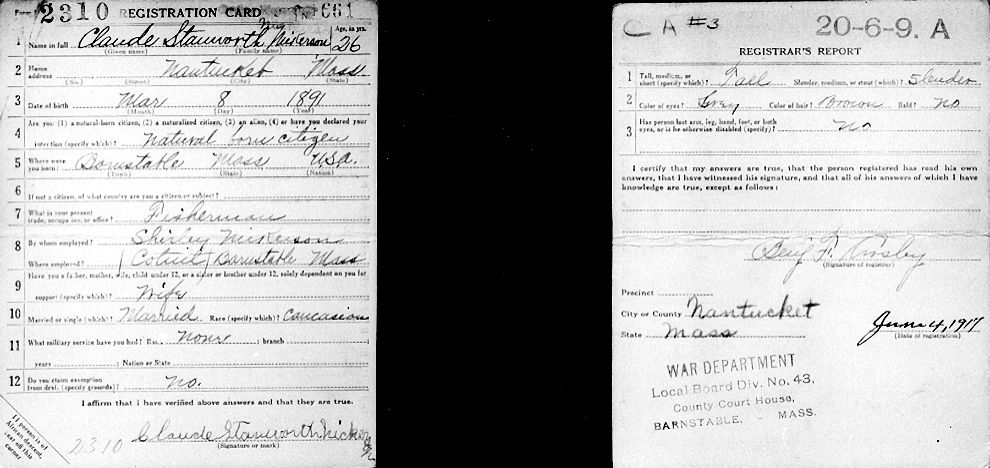 Form 2310 REGISTRATION CARD No. 661
1 Name in full Claude Stanworth Nickerson Age, in yrs. 26
(Given name) (Family name)
2 Home address Nantucket Mass
(No.) (Street) (City) (State)
3 Date of birth Mar 8 1891
(Month) (Day) (Year)
4 Are you (1) a natural-born citizen, (2) a naturalized citizen, (3) an alien, (4) or have you declared your intention (specify which)? Natural born citizen
5 Where were you born? Barnstable Mass USA.
(Town) (State) (Nation)
6 If not a citizen, of what country are you a citizen or subject?
7 What is your present trade, occupation, or office? Fisherman
8 By whom employed? Shirley Nickerson
Where employed? (Cotuit) Barnstable Mass
9 Have you a father, mother, wife, child under 12, or a sister or brother under 12, solely dependent on you for support (specify which)? Wife
10 Married or single (which)? Married Race (specify which)? Caucasion
11 What military service have you had? Rank None ; branch
years ; Nation or State
12 Do you claim exemption from draft (specify grounds)? no.
I affirm that I have verified above answers and that they are true.
2310 Claude Stanworth Nickerson
(Signature or mark)
If person is of
African descent,
tear off this
corner
C A #3 20-6-9. A
REGISTRAR'S REPORT
1 Tall, medium, or short (specify which)? Tall Slender, medium, or stout (which)? Slender
2 Color of eyes? Grey Color of hair? Brown Bald? No
3 Has person lost arm, leg, hand, foot, or both eyes, or is he otherwise disabled (specify)? No
I certify that my answers are true, that the person registered has read his own
answers, that I have witnessed his signature, and that all of his answers of which I have
knowledge are true, except as follows:
Benj F. Crosby
(Signature of registrar)
Precinct
City or County Nantucket
State Mass June 4, 1917
(Date of registration)
WAR DEPARTMENT
Local Board Div. No. 43,
County Court House,
BARNSTABLE, - MASS.